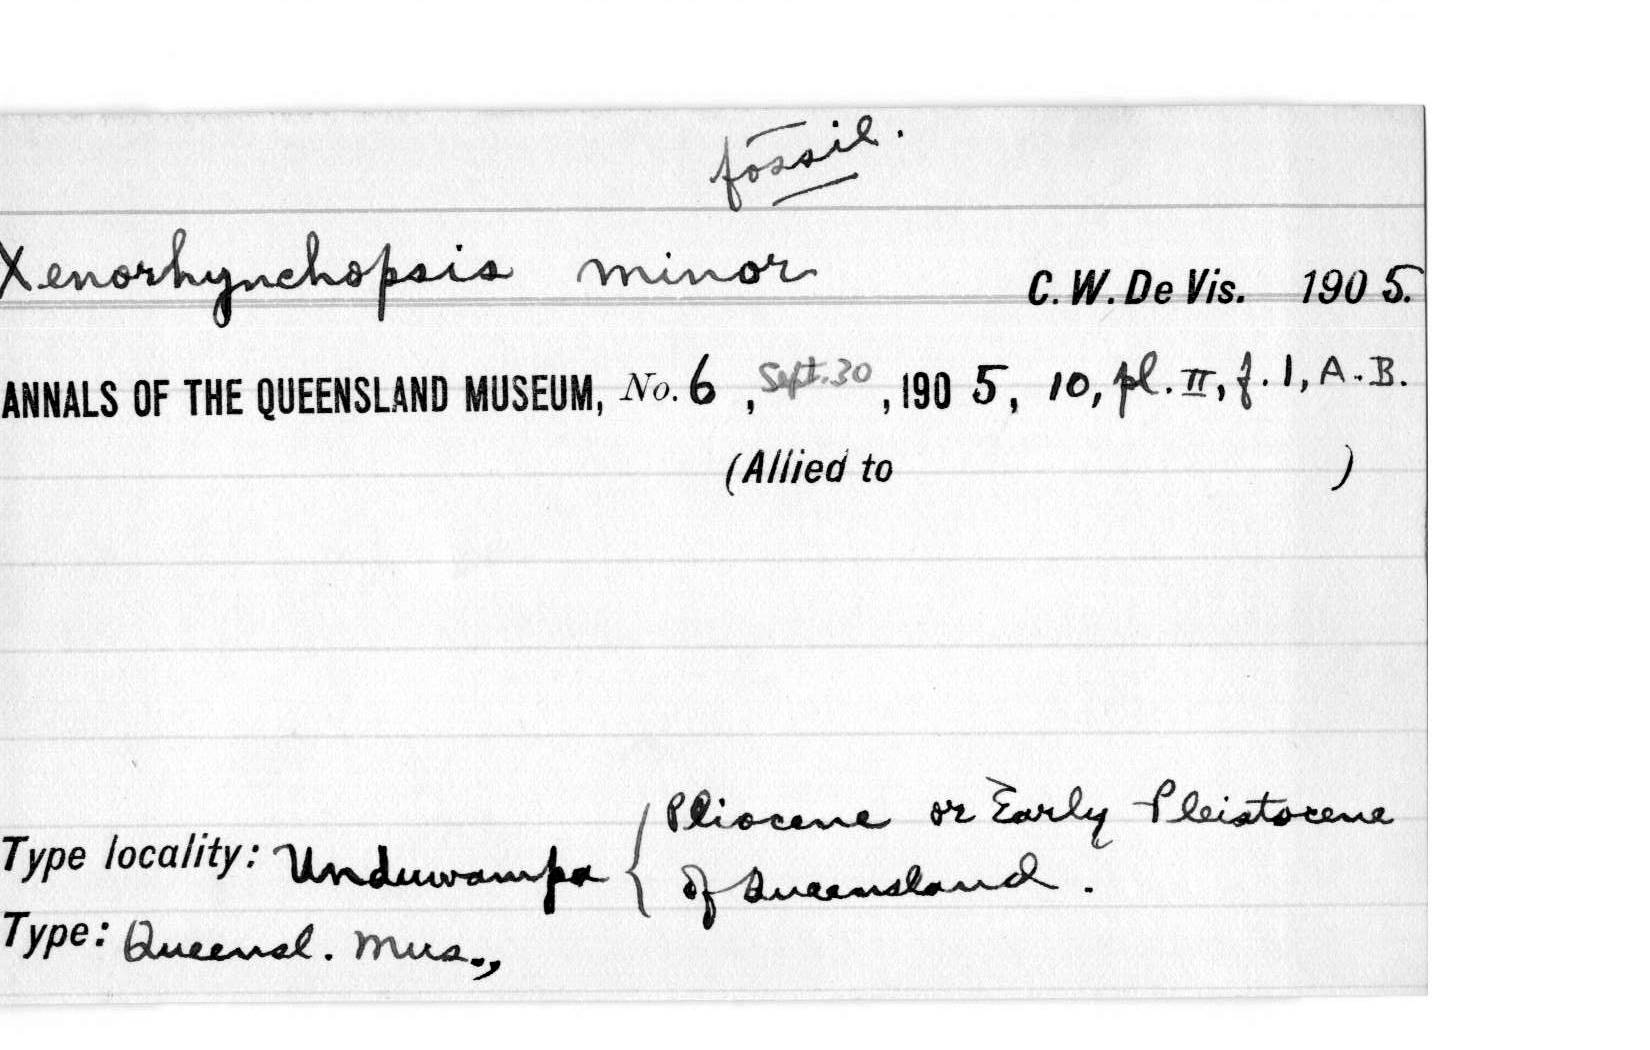 fossil.
Xenorhynchopsis minor C. W. De Vis. 1905.
ANNALS OF THE QUEENSLAND MUSEUM, No. 6, Sept. 30, 1905, 10, pl. II, f. 1, A-B.
(Allied to )
Pliocene or Early Pleistocene
Type locality: Unduwampa { of Queensland.
Type: Queensl. Mus.,